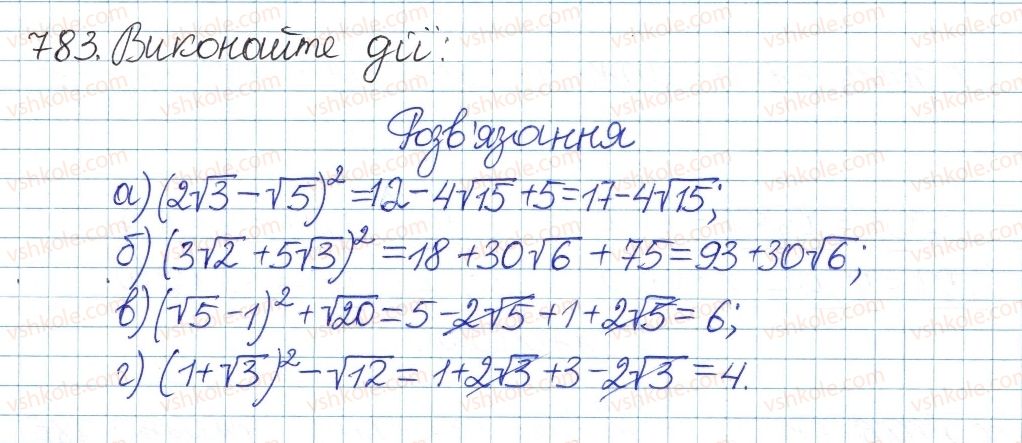 783. Виконайте дії:
Розв'язання
а) (2√3 − √5)² = 12 − 4√15 + 5 = 17 − 4√15;
б) (3√2 + 5√3)² = 18 + 30√6 + 75 = 93 + 30√6;
в) (√5 − 1)² + √20 = 5 − 2√5 + 1 + 2√5 = 6;
г) (1 + √3)² − √12 = 1 + 2√3 + 3 − 2√3 = 4.
vshkole.com